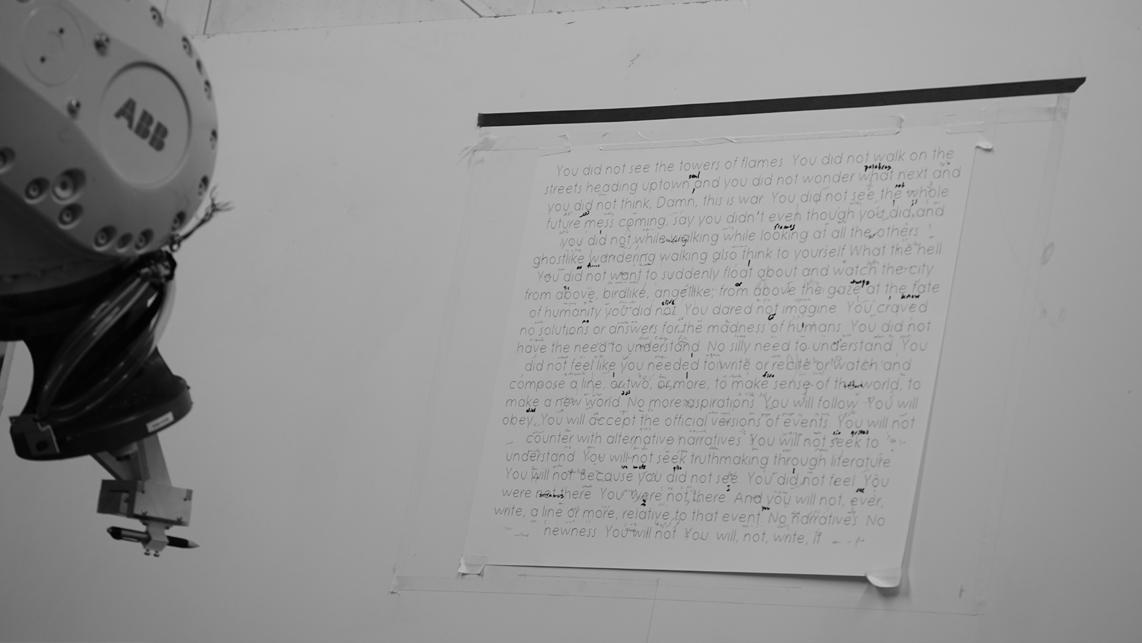 ABB
You did not see the towers of flames You did not walk on the
streets heading uptown and you did not wonder what next and
you did not think, Damn, this is war You did not see the whole
future mess coming, say you didn't even though you did, and
you did not while walking while looking at all the others
ghostlike wandering walking also think to yourself What the hell
You did not want to suddenly float about and watch the city
from above, birdlike, angellike; from above the gaze at the fate
of humanity you did not You dared not imagine You craved
no solutions or answers for the madness of humans You did not
have the need to understand No silly need to understand You
did not feel like you needed to write or recite or watch and
compose a line, or two, or more, to make sense of the world, to
make a new world No more aspirations You will follow You will
obey, You will accept the official versions of events You will not
counter with alternative narratives You will not seek to
understand You will not seek truthmaking through literature
You will not Because you did not see You did not feel You
were not there You were not there And you will not, ever,
write, a line or more, relative to that event No narratives No
newness You will not You will, not, write, it